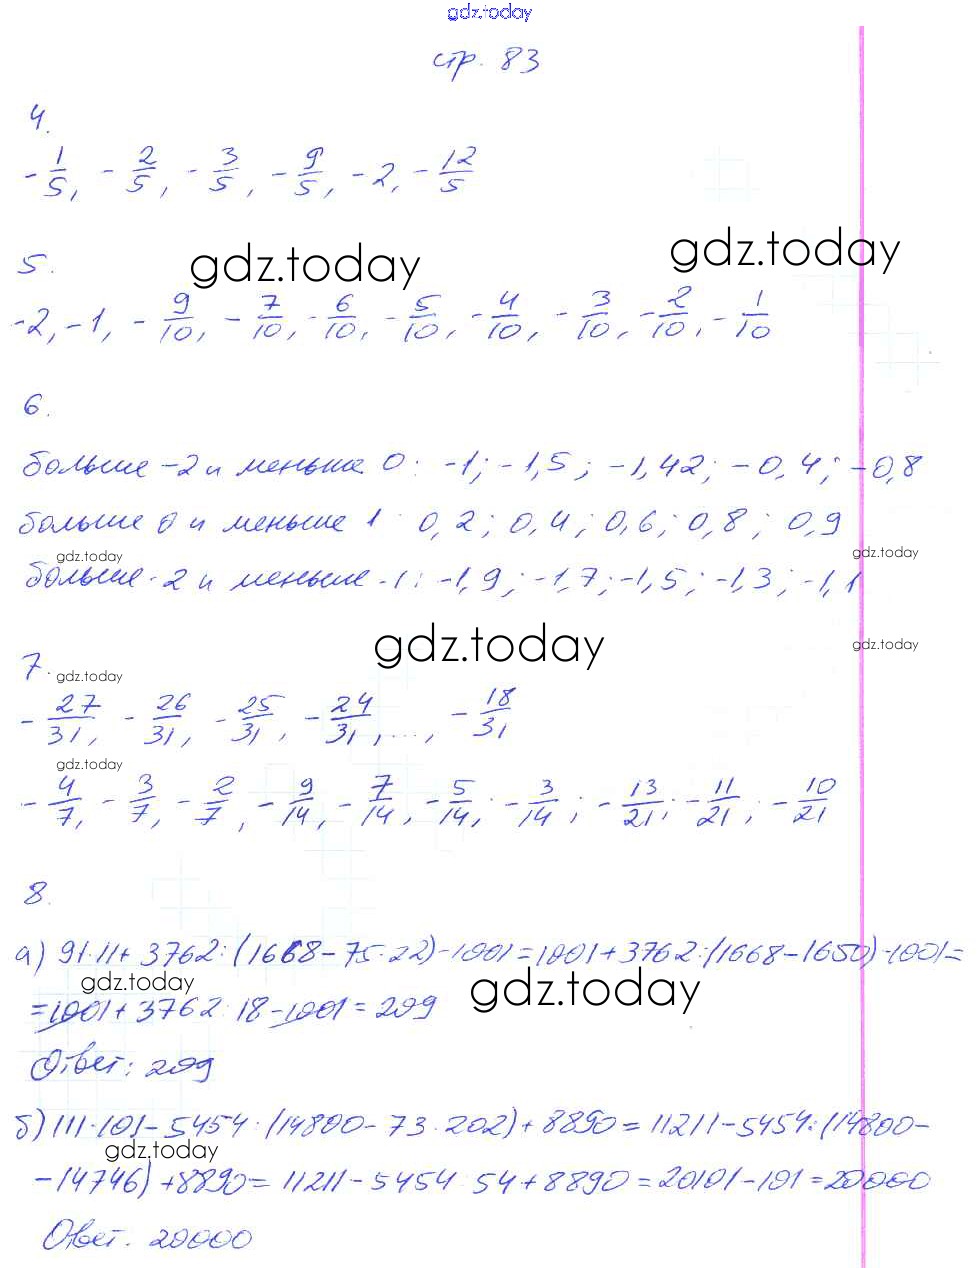 gdz.today
стр. 83
4.
-1/5, -2/5, -3/5, -9/5, -2, -12/5
gdz.today
gdz.today
5.
-2, -1, -9/10, -7/10, -6/10, -5/10, -4/10, -3/10, -2/10, -1/10
6.
больше -2 и меньше 0: -1; -1,5; -1,42; -0,4; -0,8
больше 0 и меньше 1: 0,2; 0,4; 0,6; 0,8; 0,9
gdz.today
gdz.today
больше -2 и меньше -1: -1,9; -1,7; -1,5; -1,3; -1,1
gdz.today
gdz.today
7.
gdz.today
-27/31, -26/31, -25/31, -24/31, ..., -18/31
gdz.today
-4/7, -3/7, -2/7, -9/14, -7/14, -5/14; -3/14; -13/21; -11/21; -10/21
8.
а) 91·11+3762:(1668-75·22)-1001=1001+3762:(1668-1650)-1001=
gdz.today
gdz.today
=1001+3762:18-1001=209
Ответ: 209
б) 111·101-5454:(14800-73·202)+8890=11211-5454:(14800-
gdz.today
-14746)+8890=11211-5454:54+8890=20101-101=20000
Ответ. 20000